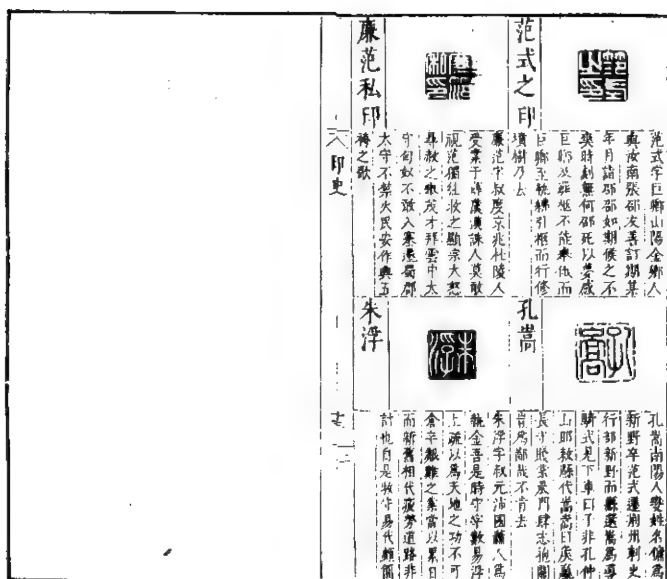 范式之印
范式字巨卿山陽金鄉人
與汝南張邵友善訂期某
年月詣邵邵如期候之不
爽時刻無何邵死以夢感
巨卿及葬柩不能舉
巨卿至執紼引柩而行修
墳樹乃去
廉范私印
廉范字叔度京兆杜陵人
受業于薛廣漢誅人莫敢
視范獨往收之顯宗大怒
尋赦之舉茂才拜雲中太
守匈奴不敢入塞遷蜀郡
太守不禁火民安作興五
袴之歌
孔嵩
孔嵩南陽人變姓名傭爲
新野卒范式遷荆州刺史
行部新野而縣選嵩爲導
騎式見下車曰子非孔仲
山耶敕縣代嵩嵩曰侯嬴
長守賤業晨門肆志抱關
爲鄙哉不肯去
朱浮
朱浮字叔元沛國蕭人爲
執金吾是時守宰數易浮
上疏以爲天地之功不可
倉卒艱難之業當以累日
而新舊相代疲勞道路非
計也自是牧守易代頗簡
印史